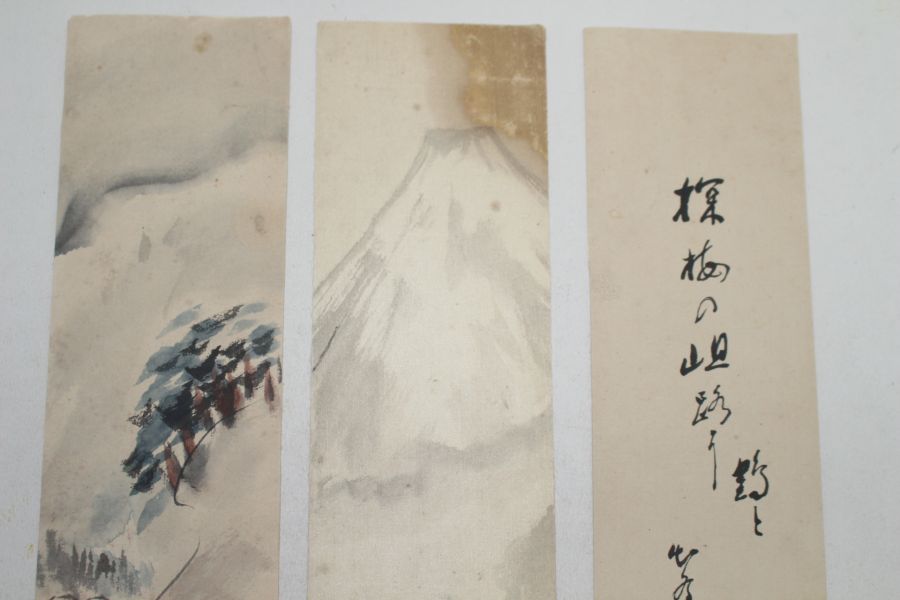 探梅の岨路に
鶴と